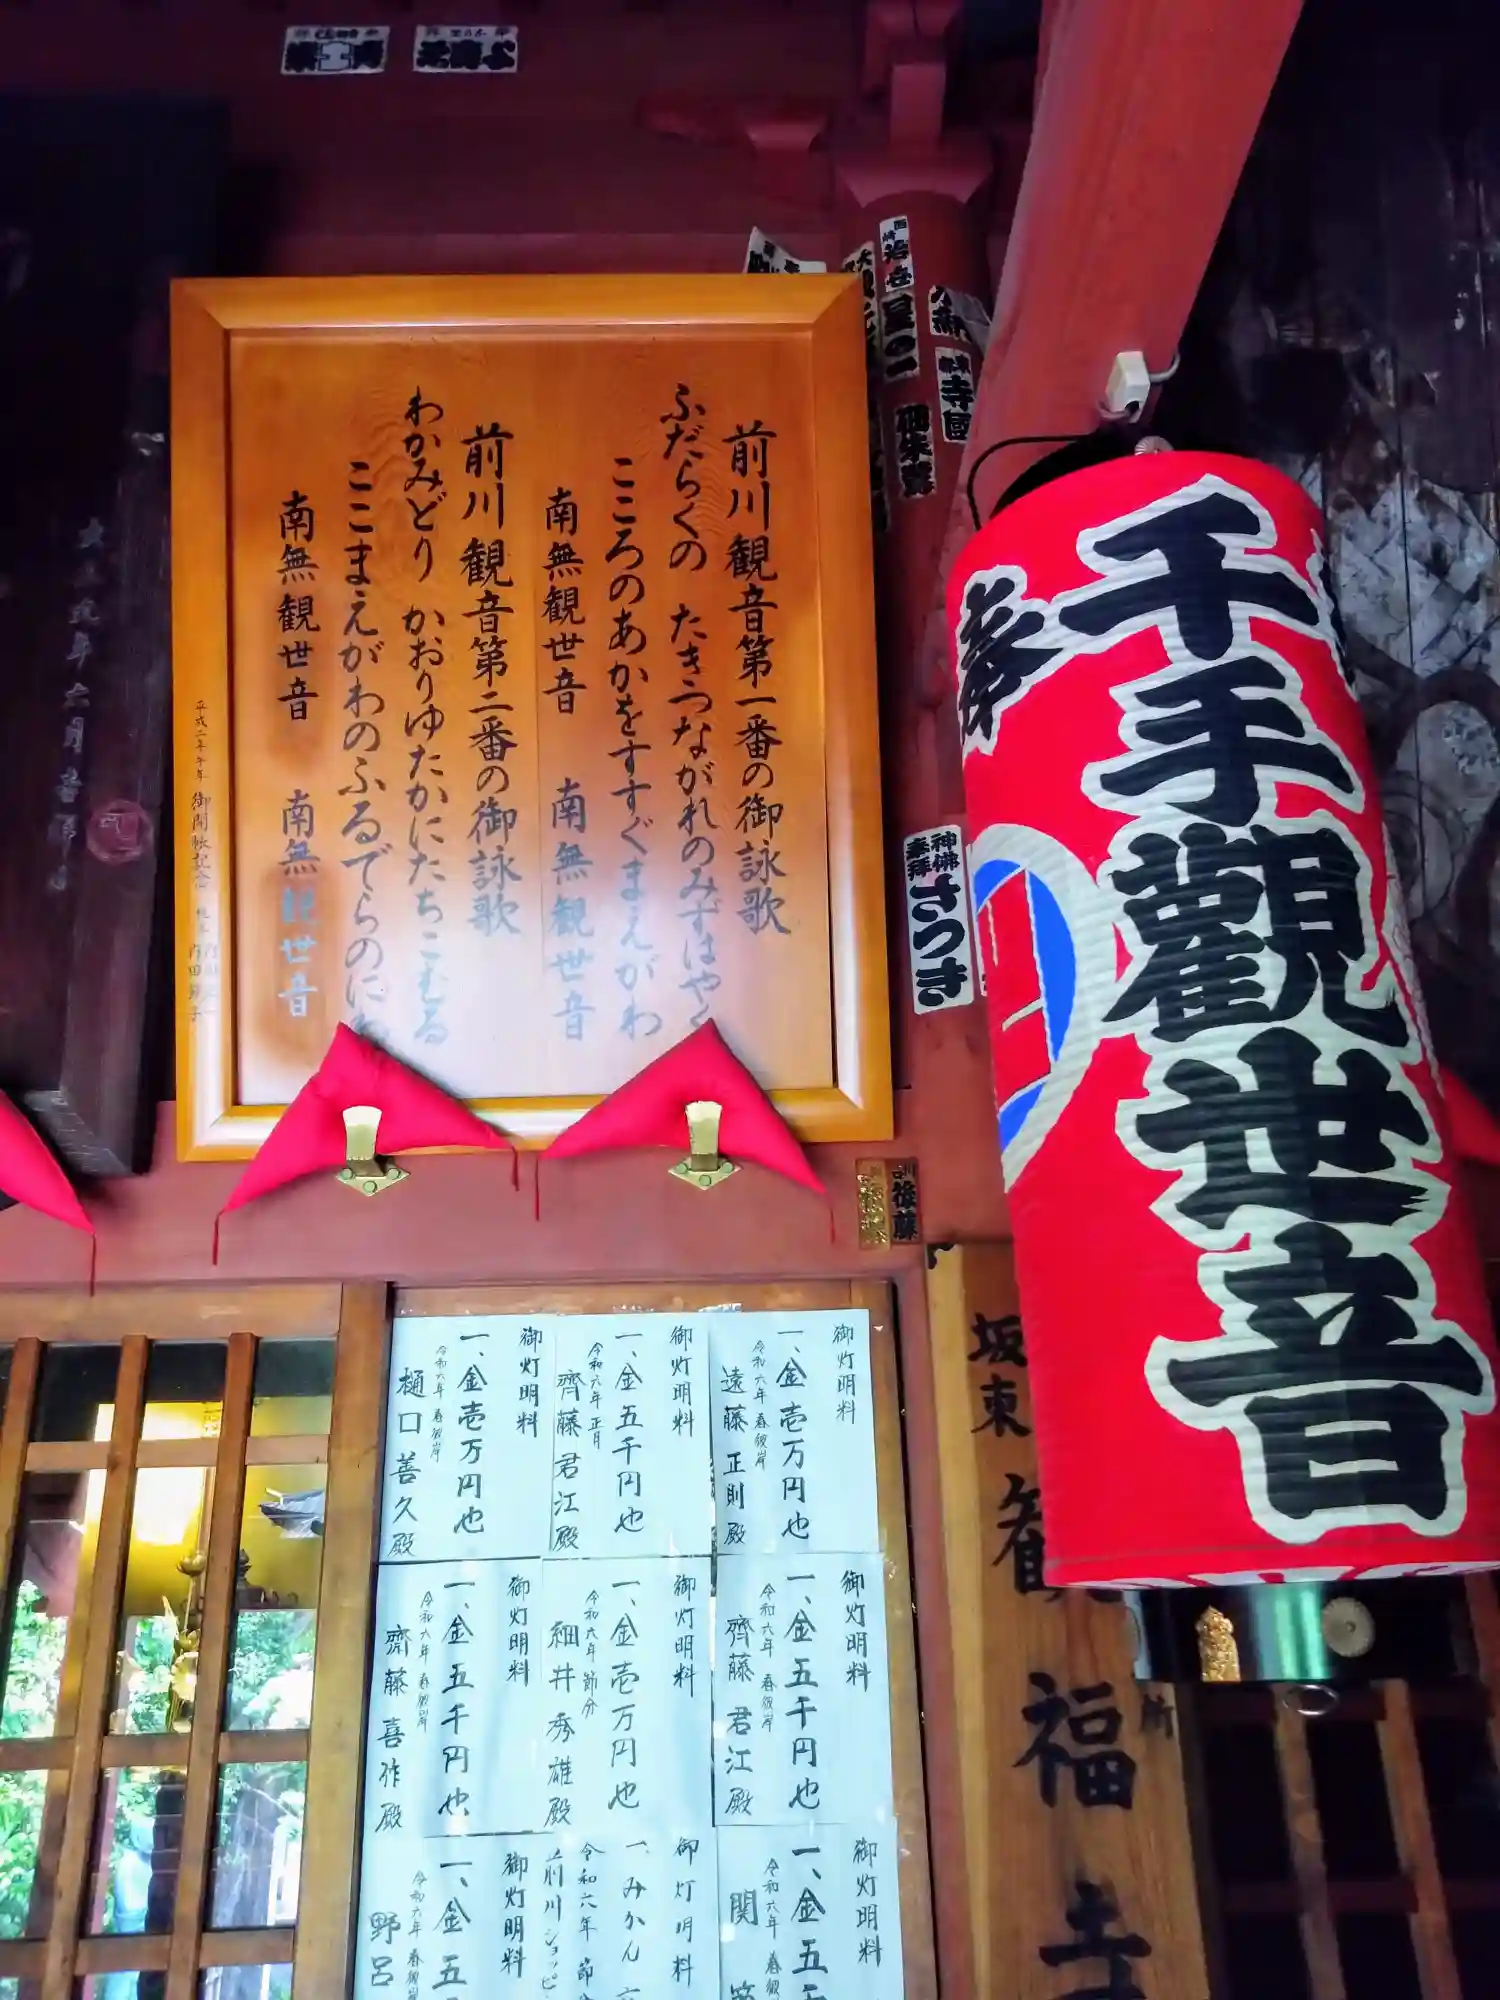 前川観音第一番の御詠歌
ふだらくの たきつながれのみずはやく
こころのあかをすすぐまえがわ
南無観世音 南無観世音
前川観音第二番の御詠歌
わかみどり かおりゆたかにたちこむる
ここまえがわのふるでらのに
南無観世音 南無観世音
平成二年午年 御開帳記念
千手觀世音
奉
西
治
屋の
御朱
寺
神佛
参拝
さつき
後藤
坂東
観
福寺
御灯明料
一、金壱万円也
令和六年 春彼岸
遠藤正則殿
御灯明料
一、金五千円也
令和六年 正月
齊藤君江殿
御灯明料
一、金壱万円也
令和六年 春彼岸
樋口善久殿
御灯明料
一、金五千円也
令和六年 春彼岸
齊藤君江殿
御灯明料
一、金壱万円也
令和六年 節分
細井秀雄殿
御灯明料
一、金五千円也
令和六年 春彼岸
齋藤喜作殿
御灯明料
一、金五千
令和六年 春
関
御灯明料
一、みかん
令和六年 節
前川ショッピ
御灯明料
一、金五
令和六年 春彼岸
野呂